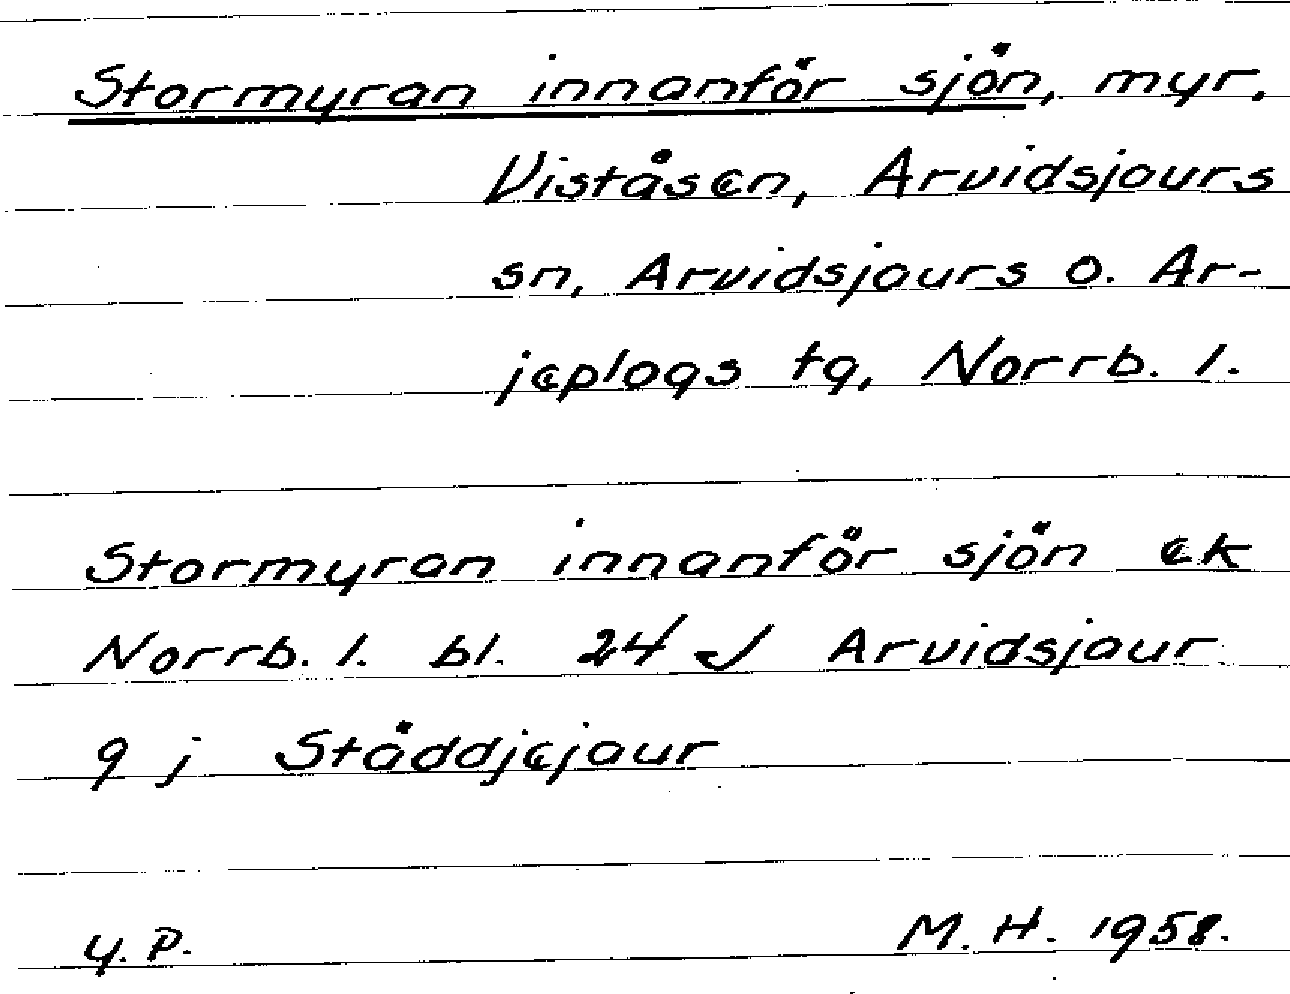 Stormyran innanför sjön, myr.
Viståsen, Arvidsjaurs
sn, Arvidsjaurs o. Ar-
jeplogs tg, Norrb. l.
Stormyran innanför sjön ek
Norrb. l. bl. 24 J Arvidsjaur
9 j Ståddjejaur
Y. P.
M. H. 1958.